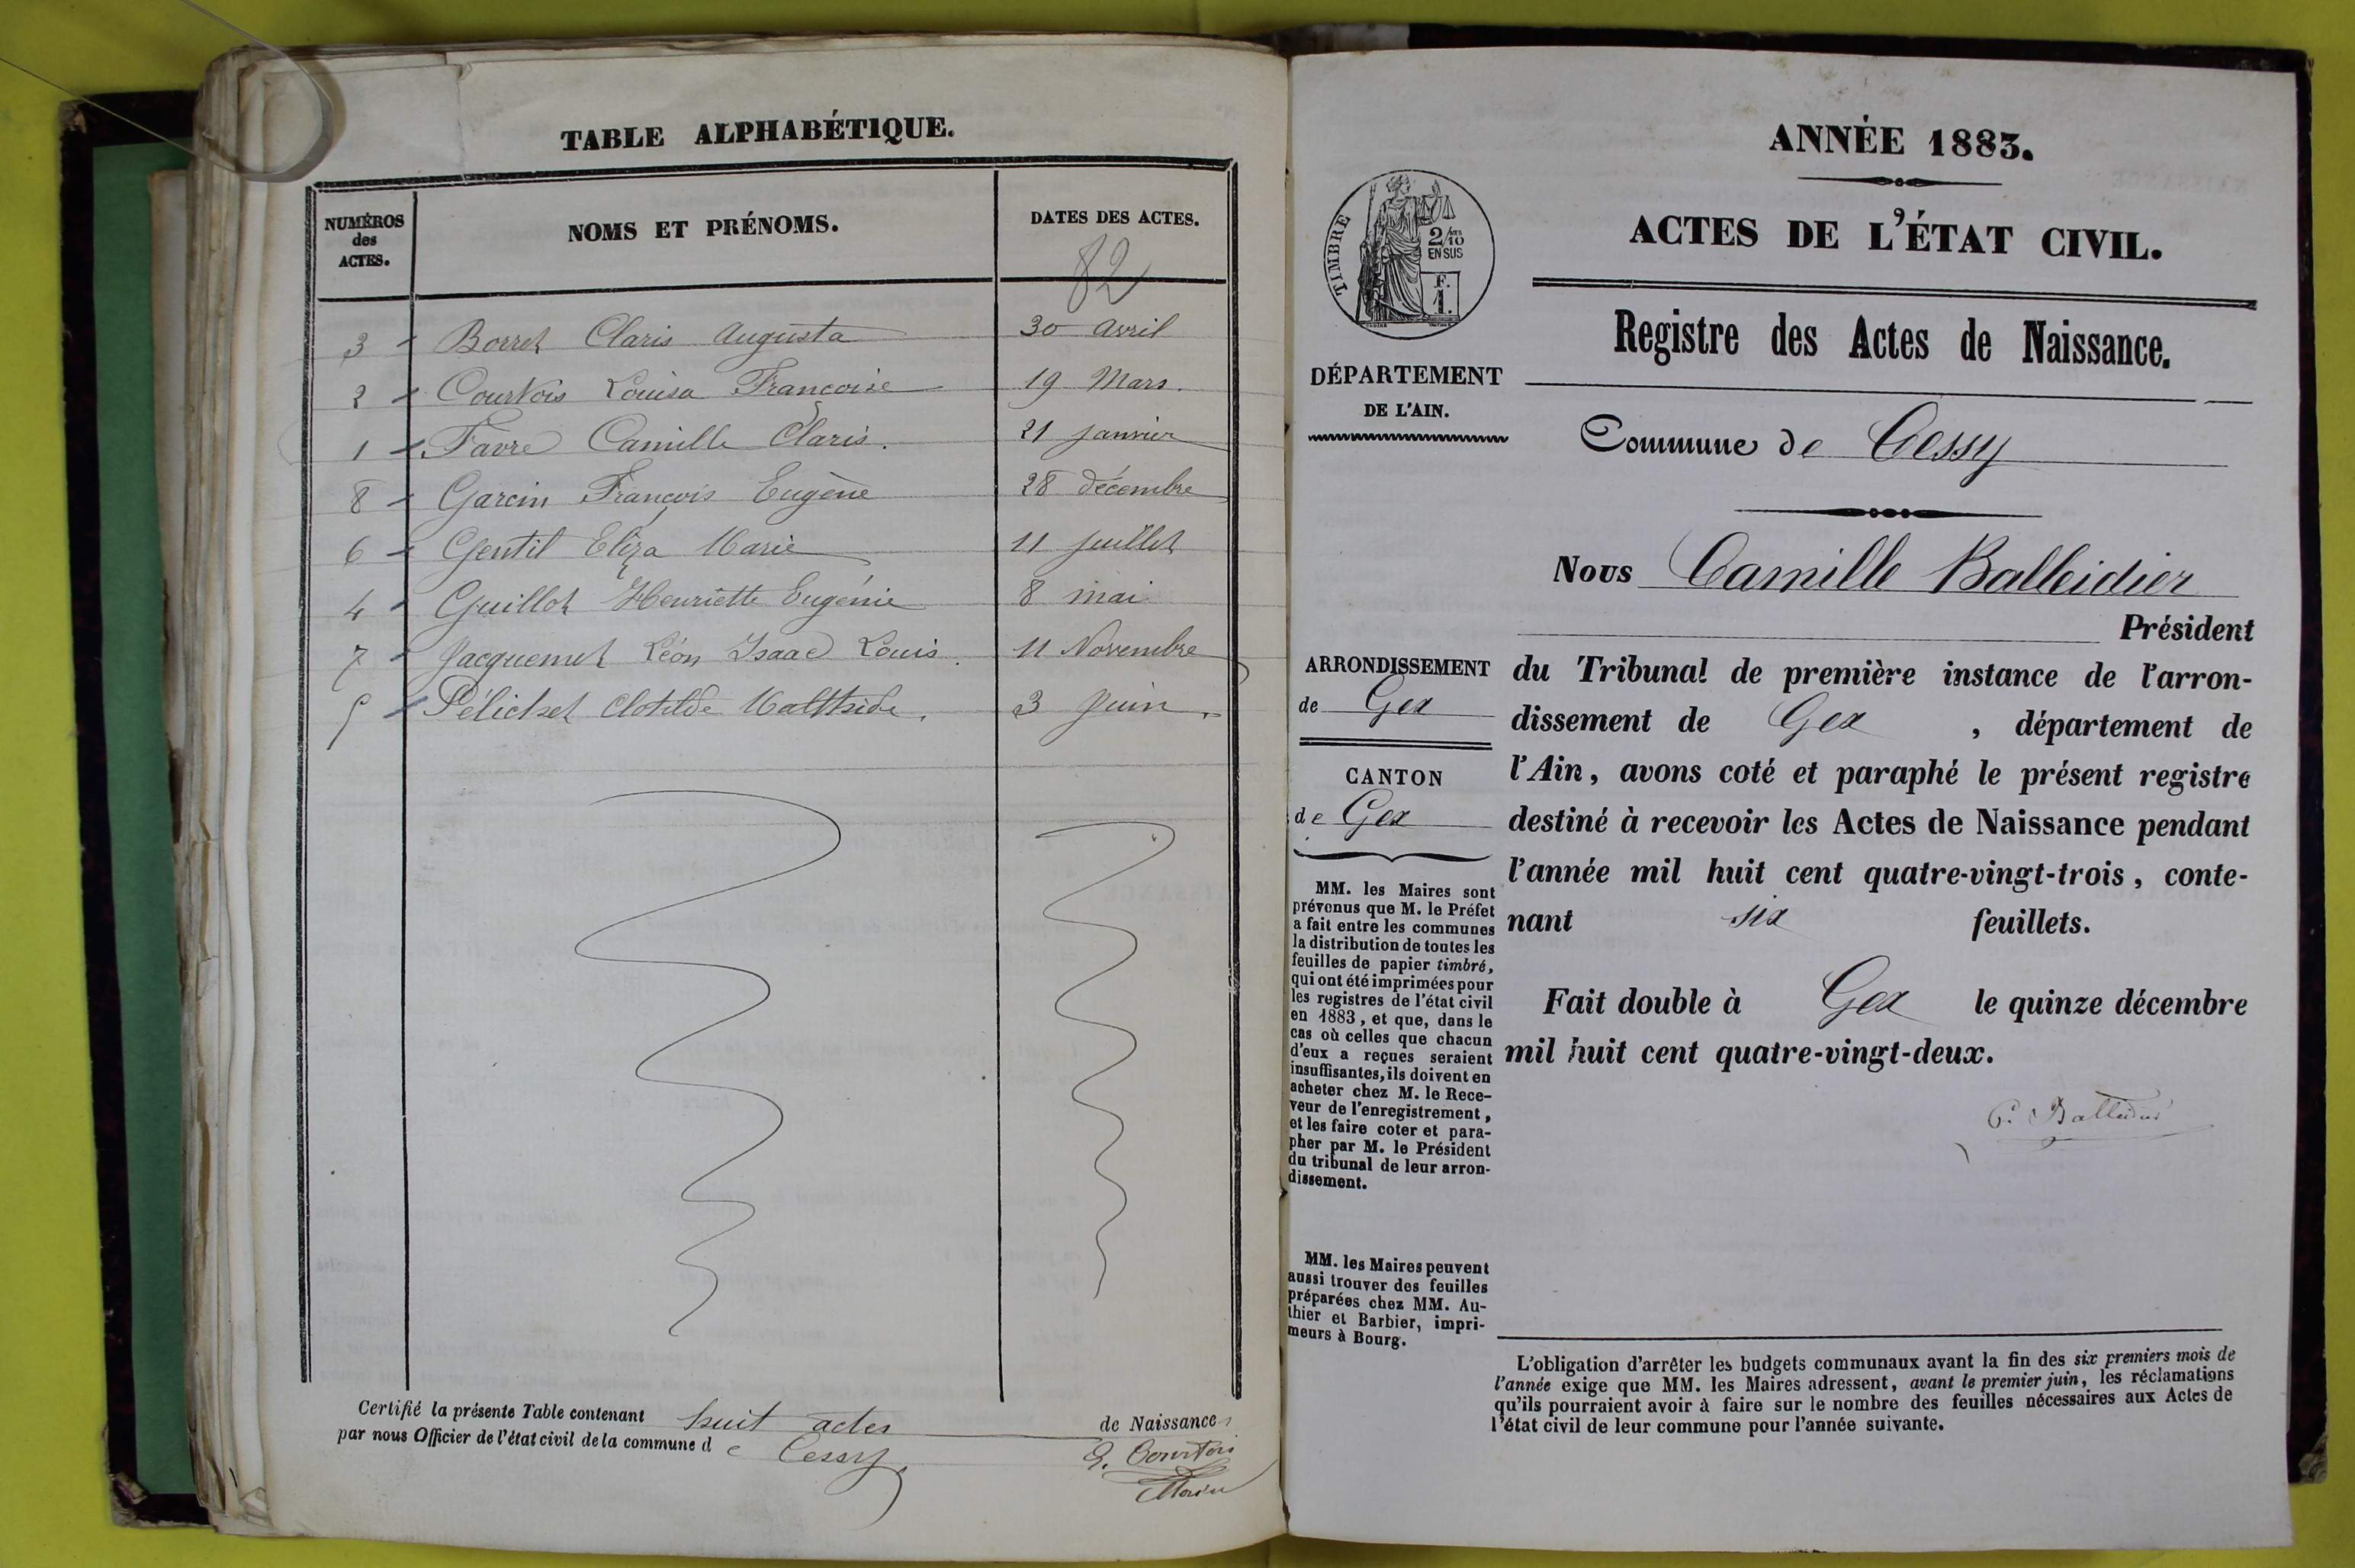 TABLE ALPHABÉTIQUE.
NUMÉROS
des
ACTES.
NOMS ET PRÉNOMS.
DATES DES ACTES.
82
3 Borret Claris Augusta 30 avril
2 Courtois Louisa Françoise 19 Mars.
1 Favre Camille Claris. 21 janvier
8 Garcin François Eugène 28 décembre
6 Gentil Eliza Marie 11 juillet
4 Guillot Henriette Eugénie 8 mai
7 Jacquemet Léon Isaac Louis. 11 Novembre
5 Pélichet Clotilde 3 Juin.
Certifié la présente Table contenant huit actes de Naissance
par nous Officier de l'état civil de la commune de Cessy
Courtois
Maire
ANNÉE 1883.
ACTES DE L'ÉTAT CIVIL.
TIMBRE
2/10
EN SUS
F.
1.
DÉPARTEMENT
DE L'AIN.
Registre des Actes de Naissance.
Commune de Cessy
Nous Camille Balleidier
Président
ARRONDISSEMENT
de Gex
CANTON
de Gex
du Tribunal de première instance de l'arron-
dissement de Gex , département de
l'Ain, avons coté et paraphé le présent registre
destiné à recevoir les Actes de Naissance pendant
l'année mil huit cent quatre-vingt-trois, conte-
nant six feuillets.
Fait double à Gex le quinze décembre
mil huit cent quatre-vingt-deux.
C. Balleidier
MM. les Maires sont
prévenus que M. le Préfet
a fait entre les communes
la distribution de toutes les
feuilles de papier timbré,
qui ont été imprimées pour
les registres de l'état civil
en 1883, et que, dans le
cas où celles que chacun
d'eux a reçues seraient
insuffisantes, ils doivent en
acheter chez M. le Rece-
veur de l'enregistrement,
et les faire coter et para-
pher par M. le Président
du tribunal de leur arron-
dissement.
MM. les Maires peuvent
aussi trouver des feuilles
préparées chez MM. Au-
thier et Barbier, impri-
meurs à Bourg.
L'obligation d'arrêter les budgets communaux avant la fin des six premiers mois de
l'année exige que MM. les Maires adressent, avant le premier juin, les réclamations
qu'ils pourraient avoir à faire sur le nombre des feuilles nécessaires aux Actes de
l'état civil de leur commune pour l'année suivante.